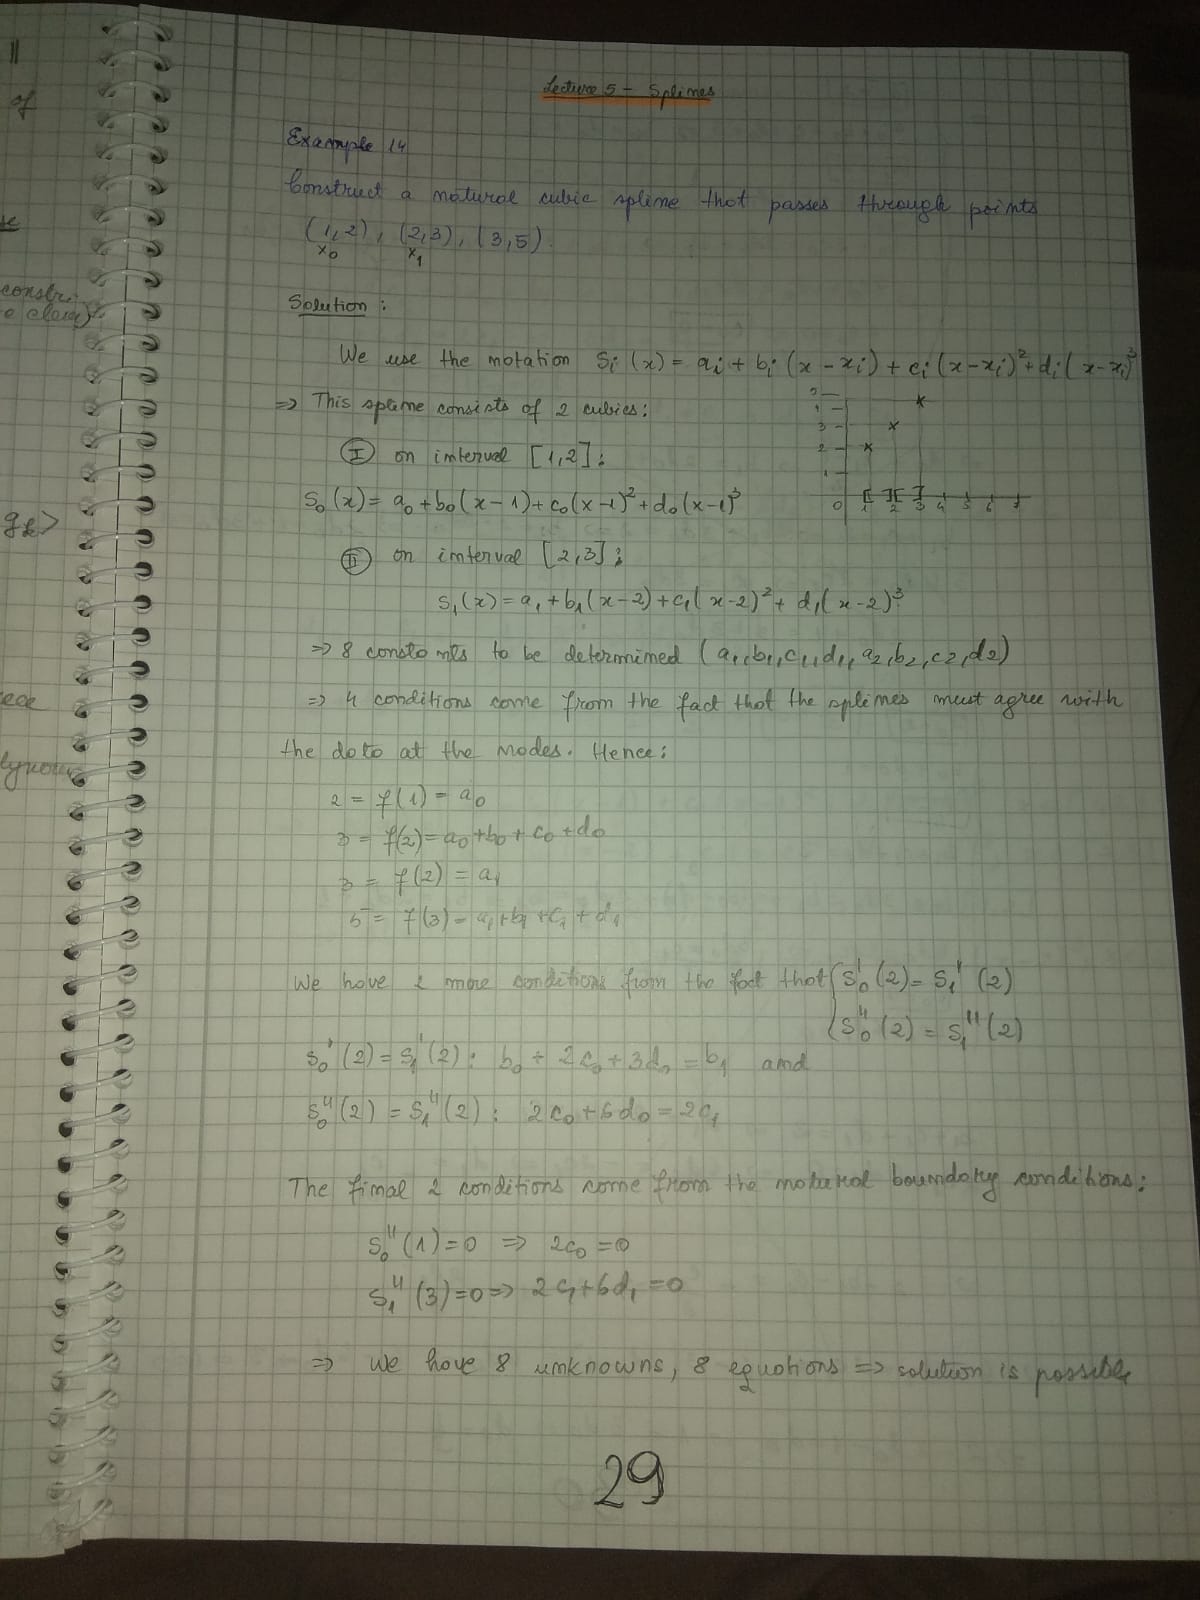 ll
of
Lecture 5 - Splines
Example 14
Construct a natural cubic spline that passes through points
(1,2), (2,3), (3,5)
x₀ x₁
constr.
Solution:
We use the notation Sᵢ(x) = aᵢ + bᵢ(x - xᵢ) + cᵢ(x-xᵢ)² + dᵢ(x-xᵢ)³
=> This spline consists of 2 cubics:
I on interval [1,2]:
3
2
1
0 1 2 3 4 5 6 7
S₀(x) = a₀ + b₀(x-1) + c₀(x-1)² + d₀(x-1)³
II on interval [2,3]:
S₁(x) = a₁ + b₁(x-2) + c₁(x-2)² + d₁(x-2)³
=> 8 constants to be determined (a₁, b₁, c₁, d₁, a₂, b₂, c₂, d₂)
=> 4 conditions come from the fact that the splines must agree with
the data at the nodes. Hence:
2 = f(1) = a₀
3 = f(2) = a₀ + b₀ + c₀ + d₀
3 = f(2) = a₁
5 = f(3) = a₁ + b₁ + c₁ + d₁
We have 2 more conditions from the fact that { S₀'(2) = S₁'(2)
S₀''(2) = S₁''(2)
S₀'(2) = S₁'(2): b₀ + 2c₀ + 3d₀ = b₁ and
S₀''(2) = S₁''(2): 2c₀ + 6d₀ = 2c₁
The final 2 conditions come from the natural boundary conditions:
S₀''(1) = 0 => 2c₀ = 0
S₁''(3) = 0 => 2c₁ + 6d₁ = 0
=> We have 8 unknowns, 8 equations => solution is possible
29